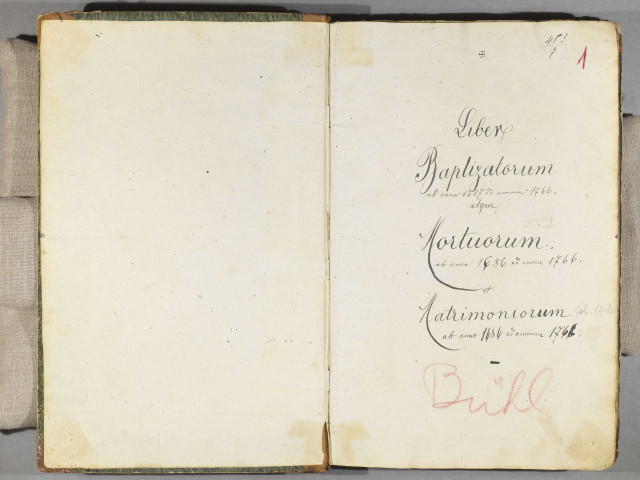 1
Liber
Baptizatorum
ab anno 1687 ad annum 1766.
atque
Mortuorum.
ab anno 1686 ad annum 1766.
et
Matrimoniorum
ab anno 1686 ad annum 1766.
Bühl